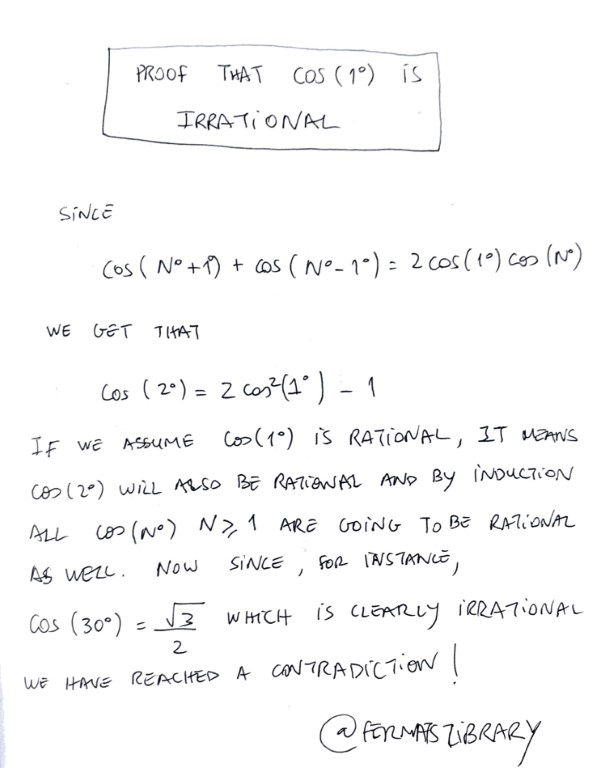 PROOF THAT COS (1°) iS
IRRATIONAL
SINCE
cos (N°+1°) + cos (N°-1°) = 2 cos(1°) cos (N°)
WE GET THAT
cos (2°) = 2 cos²(1°) - 1
IF WE ASSUME cos(1°) IS RATIONAL, IT MEANS
cos(2°) WILL ALSO BE RATIONAL AND BY INDUCTION
ALL cos(N°) N⩾1 ARE GOING TO BE RATIONAL
AS WELL. NOW SINCE, FOR INSTANCE,
cos (30°) = √3/2 WHICH IS CLEARLY IRRATIONAL
WE HAVE REACHED A CONTRADICTION!
@FERMATSLIBRARY